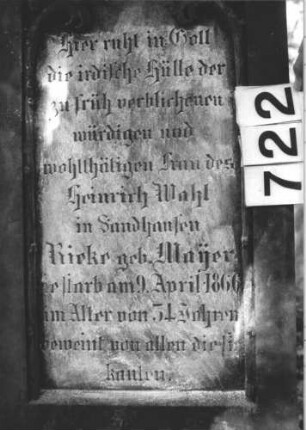 Hier ruht in Gott
die irdische Hülle der
zu früh verblichenen
würdigen und
wohlthätigen Frau des
Heinrich Wahl
in Sandhausen
Rieke geb. Mayer
gestarb am 9. April 1866
im Alter von 54 Jahren
beweint von allen die sie
kannten.
722